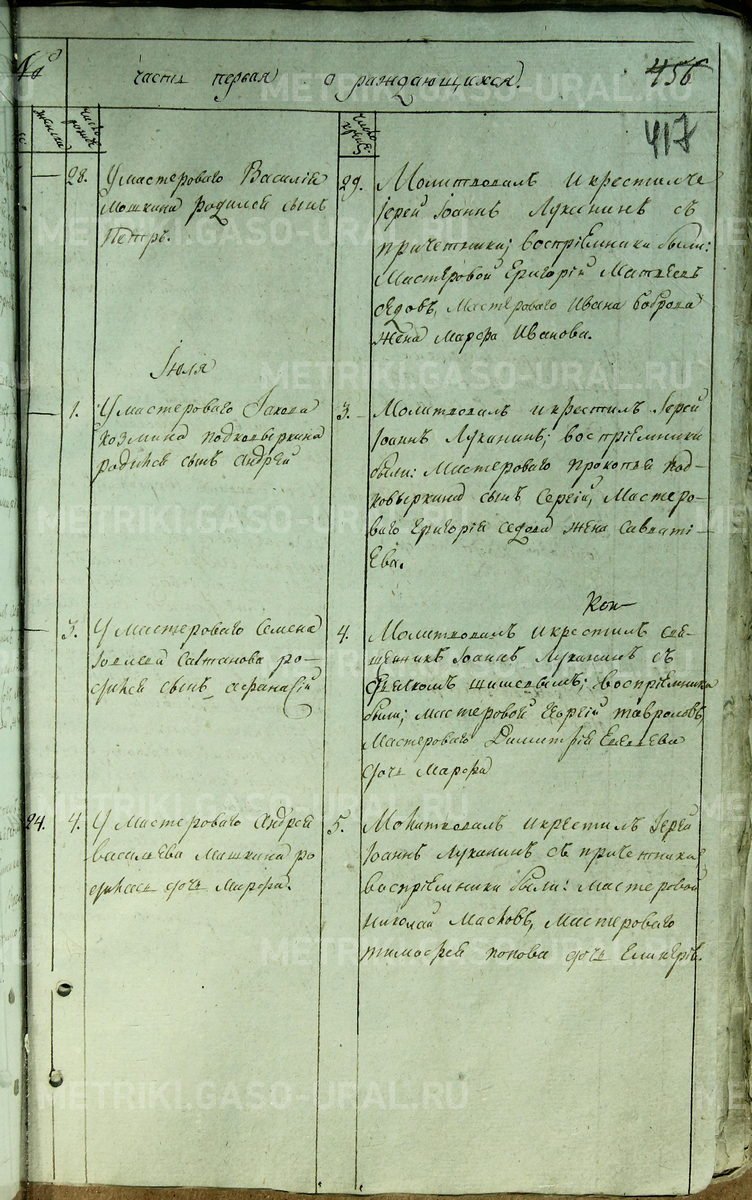 часть первая о раждающихся.
456
417
женска
число рожд.
число крещ.
28.
У мастероваго Василія
Мошкина родился сынъ
Петръ.
29.
Молитвовалъ и крестилъ
іерей Іоаннъ Луканинъ съ
причетники; воспріемники были:
Мастеровой Григорій Матвеевъ
седовъ, Мастероваго Ивана Боброва
жена Марфа Иванова.
Іюля
1.
У мастероваго Іакова
козмина подковыркина
родился сынъ андрей
3.
Молитвовалъ и крестилъ Іерей
Іоаннъ Луканинъ; воспріемники
были: мастероваго прокопья под-
ковыркина сынъ Сергій, Мастеро-
ваго Григорія седова жена савваті-
ева.
3.
У мастероваго Семена
Савтанова ро-
дился сынъ афанасій
4.
Молитвовалъ и крестилъ свя-
щенникъ Іоаннъ Луканинъ съ
дьячкомъ шишевымъ; воспріемники
были; мастеровой Георгій Тавроловъ,
Мастероваго Димитрія
дочь Марфа
24.
4.
У мастероваго Андрея
васильева машкина ро
дилась дочь Марфа.
5.
Молитвовалъ и крестилъ Іерей
Іоаннъ Луканинъ съ причетники
воспріемники были: мастеровой
николай Масловъ, Мастероваго
тимофея попова дочь
METRIKI.GASO-URAL.RU